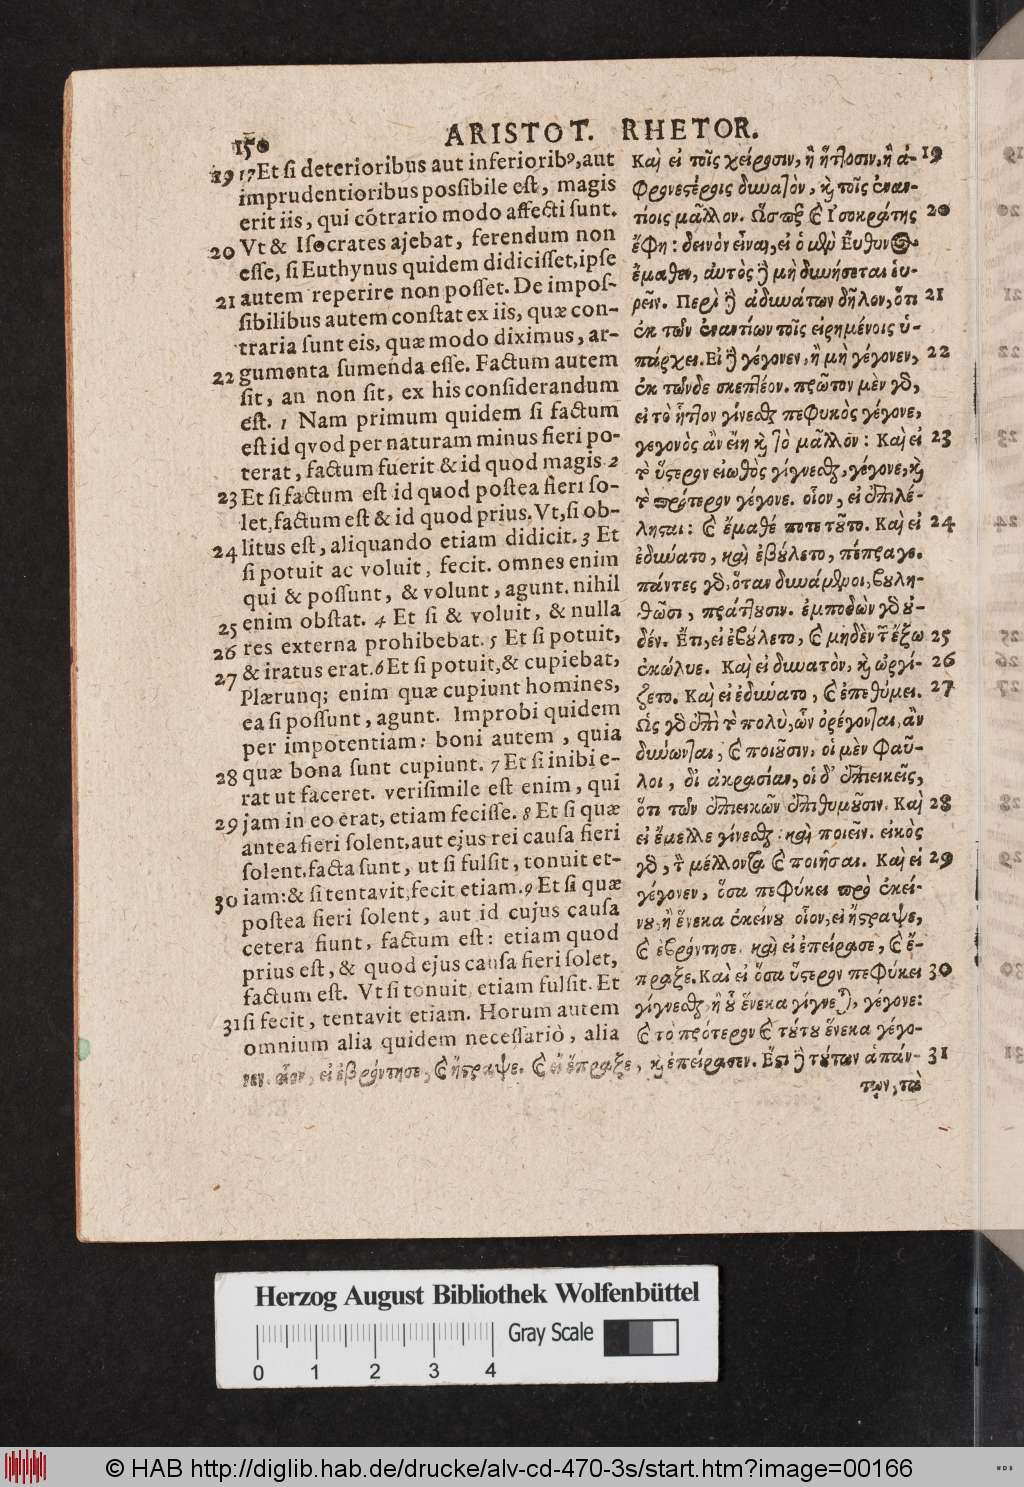 150 ARISTOT. RHETOR.
19 17 Et si deterioribus aut inferiorib⁹, aut
imprudentioribus possibile est, magis
erit iis, qui cõtrario modo affecti sunt.
20 Vt & Isocrates ajebat, ferendum non
esse, si Euthynus quidem didicisset, ipse
21 autem reperire non posset. De impos-
sibilibus autem constat ex iis, quæ con-
traria sunt eis, quæ modo diximus, ar-
22 gumenta sumenda esse. Factum autem
sit, an non sit, ex his considerandum
est. 1 Nam primum quidem si factum
est id qvod per naturam minus fieri po-
terat, factum fuerit & id quod magis. 2
23 Et si factum est id quod postea fieri so-
let, factum est & id quod prius. Vt, si ob-
24 litus est, aliquando etiam didicit. 3 Et
si potuit ac voluit, fecit. omnes enim
qui & possunt, & volunt, agunt. nihil
25 enim obstat. 4 Et si & voluit, & nulla
26 res externa prohibebat. 5 Et si potuit,
27 & iratus erat. 6 Et si potuit, & cupiebat,
Plærunq; enim quæ cupiunt homines,
ea si possunt, agunt. Improbi quidem
per impotentiam: boni autem, quia
28 quæ bona sunt cupiunt. 7 Et si inibi e-
rat ut faceret. verisimile est enim, qui
29 jam in eo erat, etiam fecisse. 8 Et si quæ
antea fieri solent, aut ejus rei causa fieri
solent, facta sunt, ut si fulsit, tonuit et-
30 iam: & si tentavit, fecit etiam. 9 Et si quæ
postea fieri solent, aut id cujus causa
cetera fiunt, factum est: etiam quod
prius est, & quod ejus causa fieri solet,
factum est. Vt si tonuit, etiam fulsit. Et
31 si fecit, tentavit etiam. Horum autem
omnium alia quidem necessariò, alia
Καὶ εἰ τοῖς χείροσιν, ἢ ἥττοσιν, ἢ ἀ- 19
φρονεστέροις δυνατὸν, καὶ τοῖς ἐναν-
τίοις μᾶλλον. Ὥσπερ καὶ Ἰσοκράτης 20
ἔφη: δεινὸν εἶναι, εἰ ὁ μὲν Εὔθυνος
ἔμαθεν, αὐτὸς δὲ μὴ δυνήσεται εὑ-
ρεῖν. Περὶ δὲ ἀδυνάτων δῆλον, ὅτι 21
ἐκ τῶν ἐναντίων τοῖς εἰρημένοις ὑ-
πάρχει. Εἰ δὲ γέγονεν, ἢ μὴ γέγονεν, 22
ἐκ τῶνδε σκεπτέον. πρῶτον μὲν γὰρ,
εἰ τὸ ἧττον γίνεσθαι πεφυκὸς γέγονε,
γεγονὸς ἂν εἴη καὶ τὸ μᾶλλον: Καὶ εἰ 23
τὸ ὕστερον εἰωθὸς γίγνεσθαι, γέγονε, καὶ
τὸ πρότερον γέγονε. οἷον, εἰ ἐπιλέ-
λησται: καὶ ἔμαθέ ποτε τοῦτο. Καὶ εἰ 24
ἐδύνατο, καὶ ἐβούλετο, πέπραγε.
πάντες γὰρ, ὅταν δυνάμενοι, βουλη-
θῶσι, πράττουσιν. ἐμποδὼν γὰρ οὐ-
δέν. Ἔτι, εἰ ἐβούλετο, καὶ μηδὲν τῶν ἔξω 25
ἐκώλυε. Καὶ εἰ δυνατὸν, καὶ ὠργί- 26
ζετο. Καὶ εἰ ἐδύνατο, καὶ ἐπεθύμει. 27
Ὡς γὰρ ἐπὶ τὸ πολὺ, ὧν ὀρέγονται, ἂν
δύνωνται, καὶ ποιοῦσιν, οἱ μὲν φαῦ-
λοι, δι' ἀκρασίαν, οἱ δ' ἐπιεικεῖς,
ὅτι τῶν ἐπιεικῶν ἐπιθυμοῦσιν. Καὶ 28
εἰ ἔμελλε γίνεσθαι καὶ ποιεῖν. εἰκὸς
γὰρ, τὸν μέλλοντα καὶ ποιῆσαι. Καὶ εἰ 29
γέγονεν, ὅσα πεφύκει πρὸ ἐκεί-
νου, ἢ ἕνεκα ἐκείνου οἷον, εἰ ἤστραψε,
καὶ ἐβρόντησε. καὶ εἰ ἐπείρασε, καὶ ἔ-
πραξε. Καὶ εἰ ὅσα ὕστερον πεφύκει 30
γίγνεσθαι, ἢ οὗ ἕνεκα γίγνεται, γέγονε:
καὶ τὸ πρότερον καὶ τούτου ἕνεκα γέγο-
νεν. οἷον, εἰ ἐβρόντησε, καὶ ἤστραψε. καὶ εἰ ἔπραξε, καὶ ἐπείρασεν. Ἔστι δὲ τούτων ἁπάν- 31
των, τὰ
Herzog August Bibliothek Wolfenbüttel
Gray Scale
0 1 2 3 4
© HAB http://diglib.hab.de/drucke/alv-cd-470-3s/start.htm?image=00166